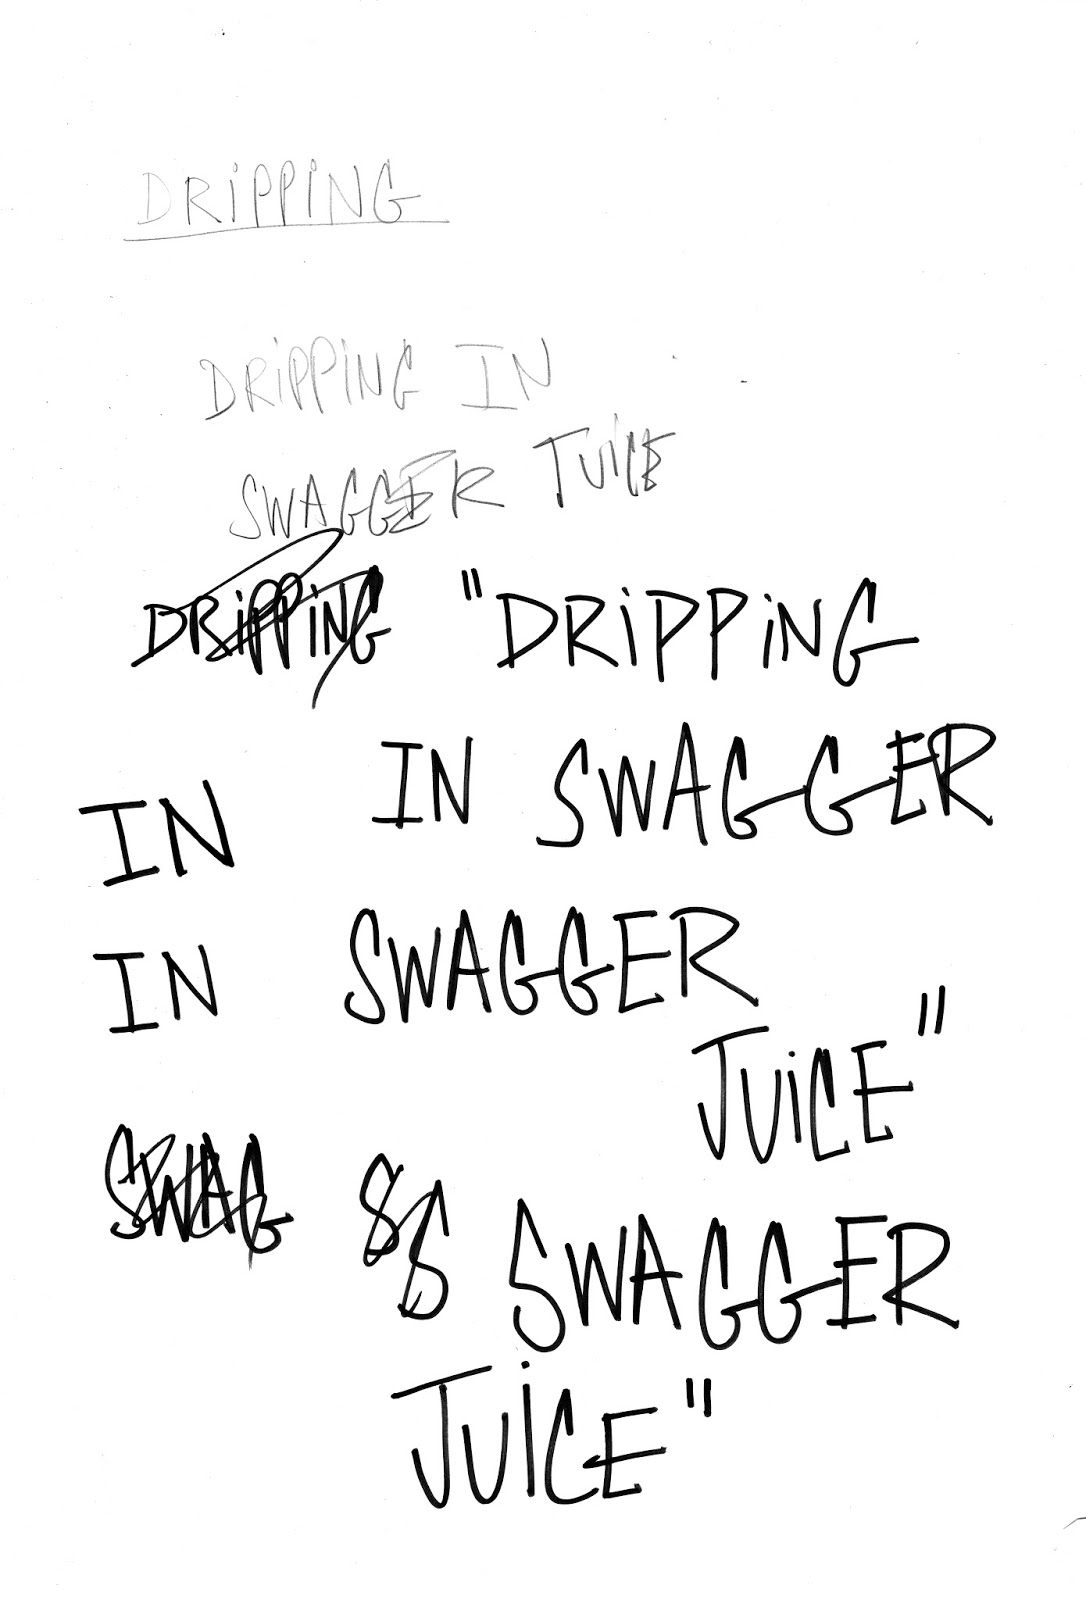 DRiPPiNG
DRiPPiNG IN
SWAGGER JUiCE
DRiPPiNG "DRiPPiNG
IN IN SWAGGER
IN SWAGGER
JUiCE"
SWAG S S SWAGGER
JUiCE"